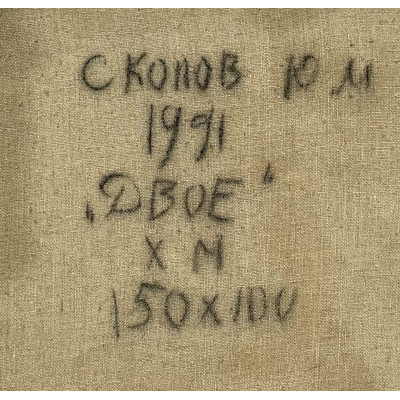 СКОПОВ Ю М
1991
"ДВОЕ"
Х М
150х100